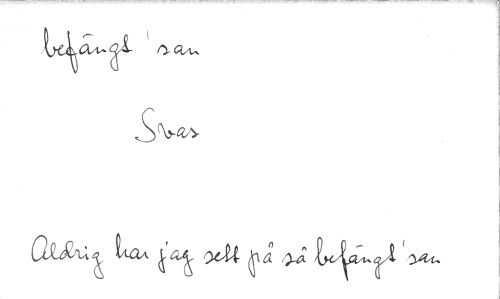 befängt'san
Svas
Aldrig har jag sett på så befängt'san